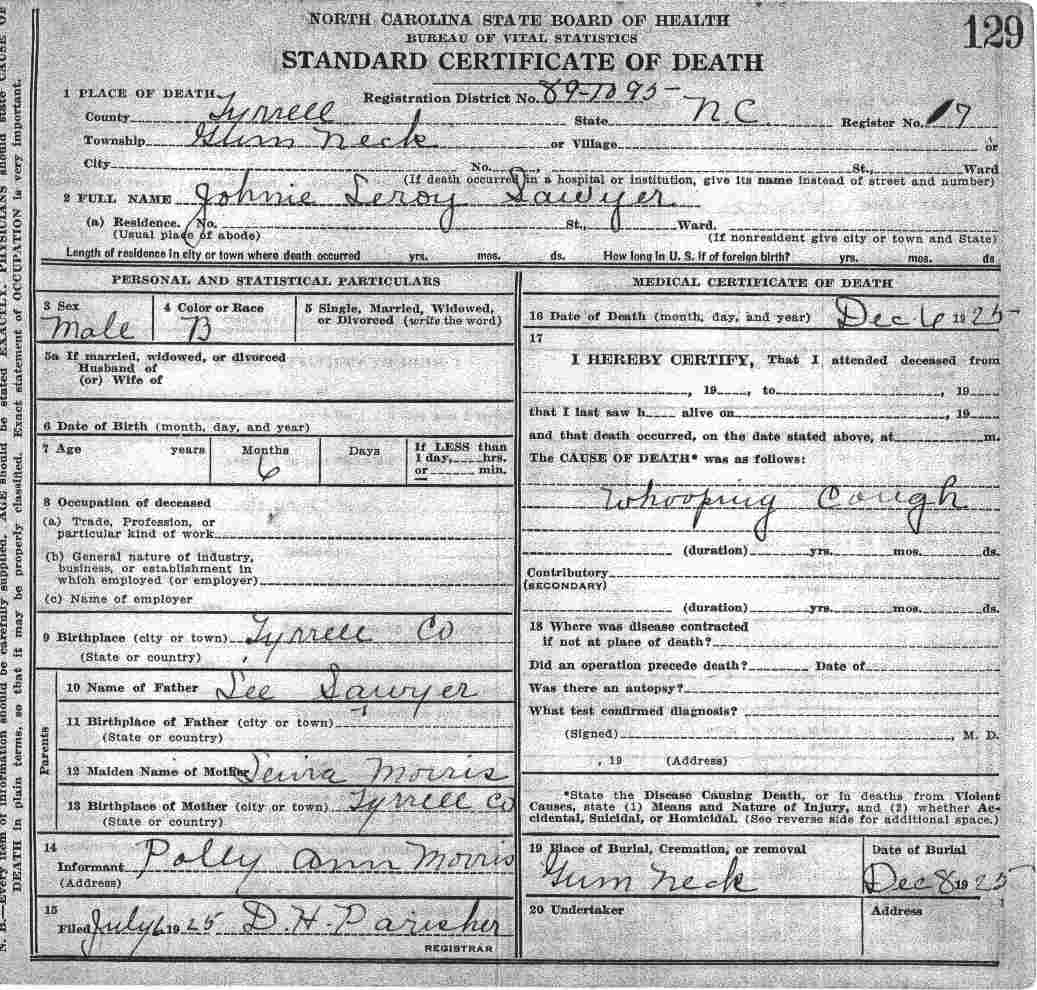 NORTH CAROLINA STATE BOARD OF HEALTH
BUREAU OF VITAL STATISTICS
STANDARD CERTIFICATE OF DEATH
129
1 PLACE OF DEATH
Registration District No. 89-1095
County Tyrrell State N.C. Register No. 17
Township Gum Neck or Village or
City No. St., Ward
(If death occurred in a hospital or institution, give its name instead of street and number)
2 FULL NAME Johnie Leroy Sawyer
(a) Residence. No. St., Ward.
(Usual place of abode) (If nonresident give city or town and State)
Length of residence in city or town where death occurred yrs. mos. ds. How long in U. S. if of foreign birth? yrs. mos. ds.
PERSONAL AND STATISTICAL PARTICULARS
3 Sex
Male
4 Color or Race
B
5 Single, Married, Widowed,
or Divorced (write the word)
5a If married, widowed, or divorced
Husband of
(or) Wife of
6 Date of Birth (month, day, and year)
7 Age years Months Days
6
If LESS than
1 day, hrs.
or min.
8 Occupation of deceased
(a) Trade, Profession, or
particular kind of work
(b) General nature of industry,
business, or establishment in
which employed (or employer)
(c) Name of employer
9 Birthplace (city or town) Tyrrell Co
(State or country)
Parents
10 Name of Father Lee Sawyer
11 Birthplace of Father (city or town)
(State or country)
12 Maiden Name of Mother Morris
13 Birthplace of Mother (city or town) Tyrrell Co
(State or country)
14
Informant Polly Ann Morris
(Address)
15
Filed July 1925 D. H. Parisher
REGISTRAR
MEDICAL CERTIFICATE OF DEATH
16 Date of Death (month, day, and year) Dec 6 1925
17
I HEREBY CERTIFY, That I attended deceased from
, 19 , to , 19
that I last saw h alive on , 19
and that death occurred, on the date stated above, at m.
The CAUSE OF DEATH* was as follows:
Whooping Cough
(duration) yrs. mos. ds.
Contributory
(SECONDARY)
(duration) yrs. mos. ds.
18 Where was disease contracted
if not at place of death?
Did an operation precede death? Date of
Was there an autopsy?
What test confirmed diagnosis?
(Signed) , M. D.
, 19 (Address)
*State the Disease Causing Death, or in deaths from Violent
Causes, state (1) Means and Nature of Injury, and (2) whether Ac-
cidental, Suicidal, or Homicidal. (See reverse side for additional space.)
19 Place of Burial, Cremation, or removal
Gum Neck
Date of Burial
Dec 8 1925
20 Undertaker
Address
N. B.—Every item of information should be carefully supplied. AGE should be stated EXACTLY. PHYSICIANS should state CAUSE OF
DEATH in plain terms, so that it may be properly classified. Exact statement of OCCUPATION is very important.